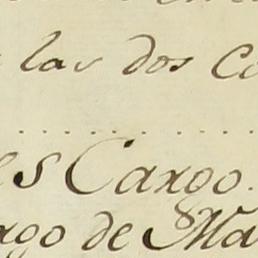 las dos Co
es Cargo.
rgo de Ma